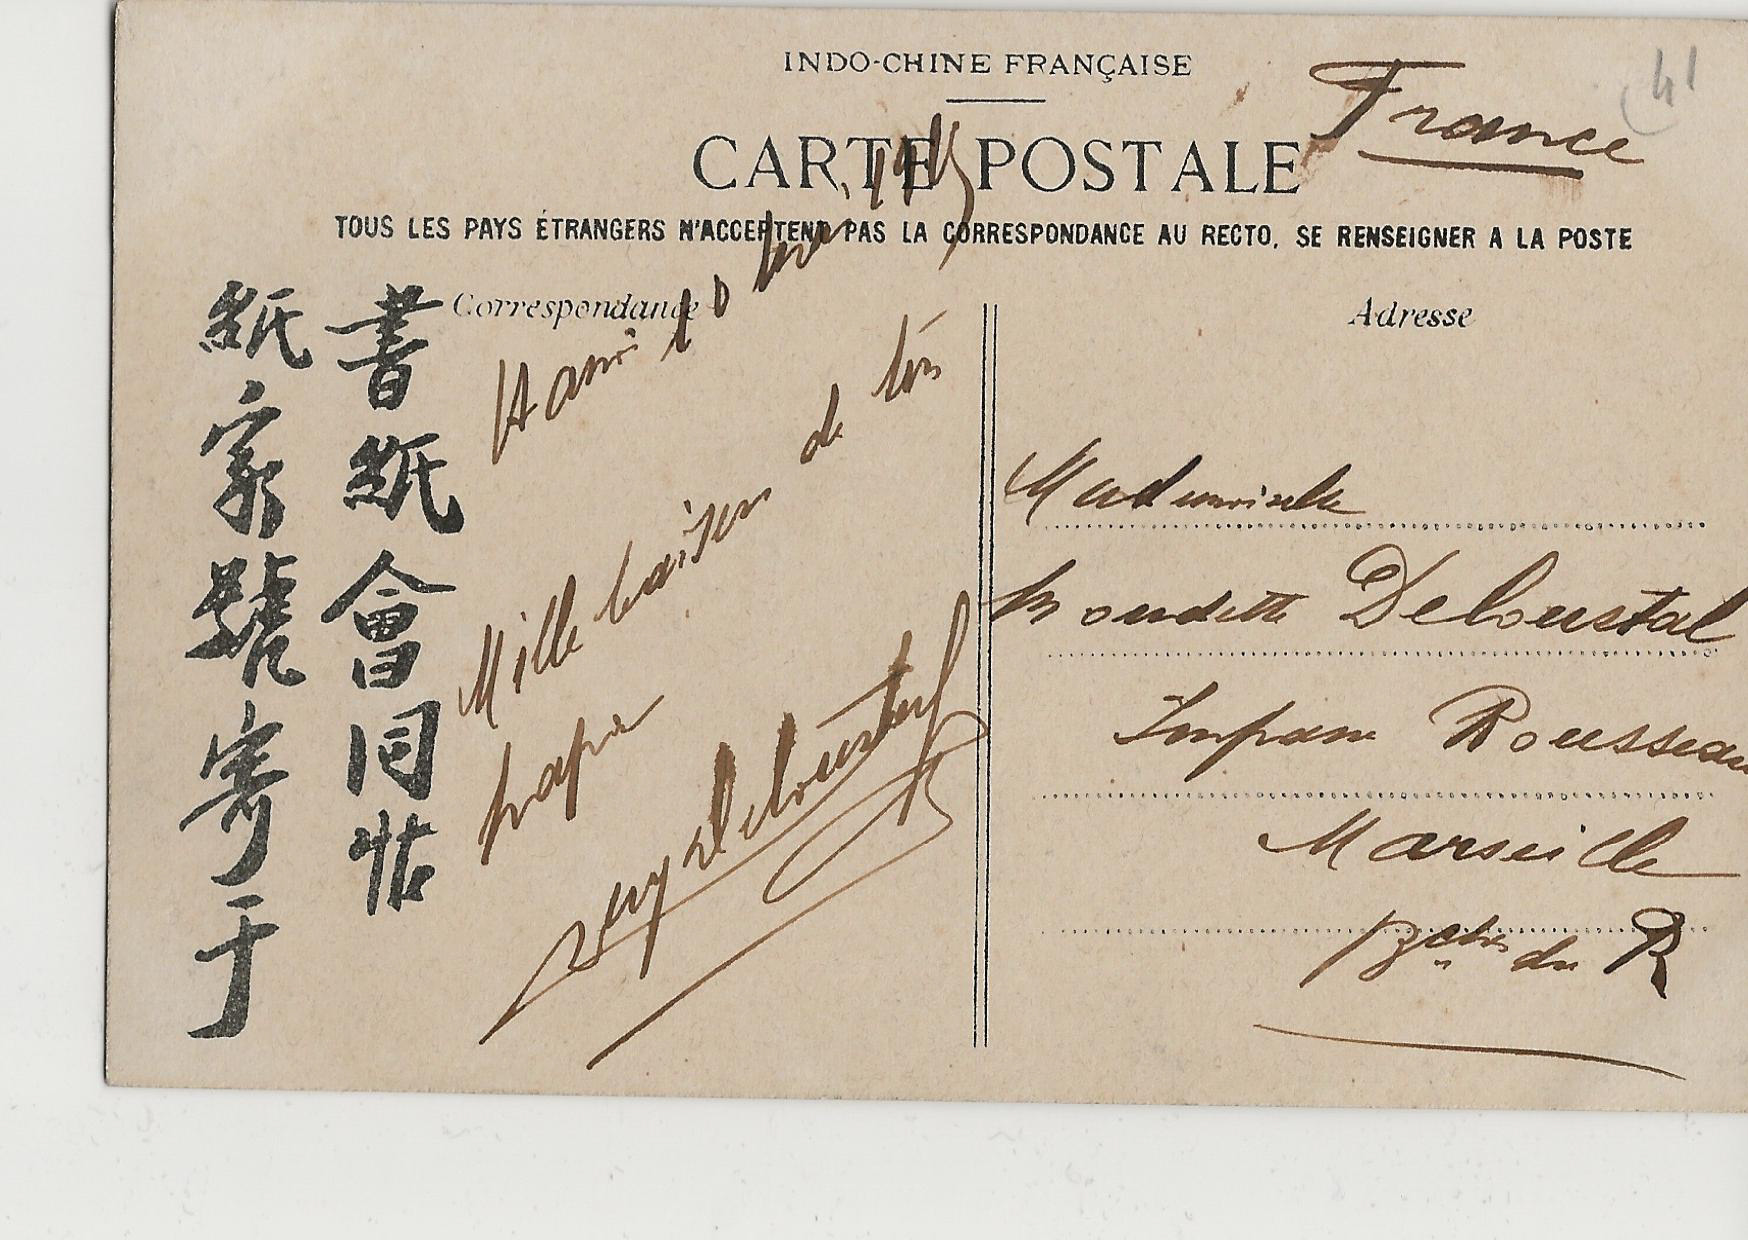 INDO-CHINE FRANÇAISE
CARTE POSTALE
TOUS LES PAYS ÉTRANGERS N'ACCEPTENT PAS LA CORRESPONDANCE AU RECTO, SE RENSEIGNER A LA POSTE
France
41
Correspondance
書紙會同帖
紙家號寄于
Hanoi 10
Mille baisers de ton
papa
Deloustal
Adresse
Mademoiselle
Deloustal
Impasse Rousseau
Marseille
Bches du R